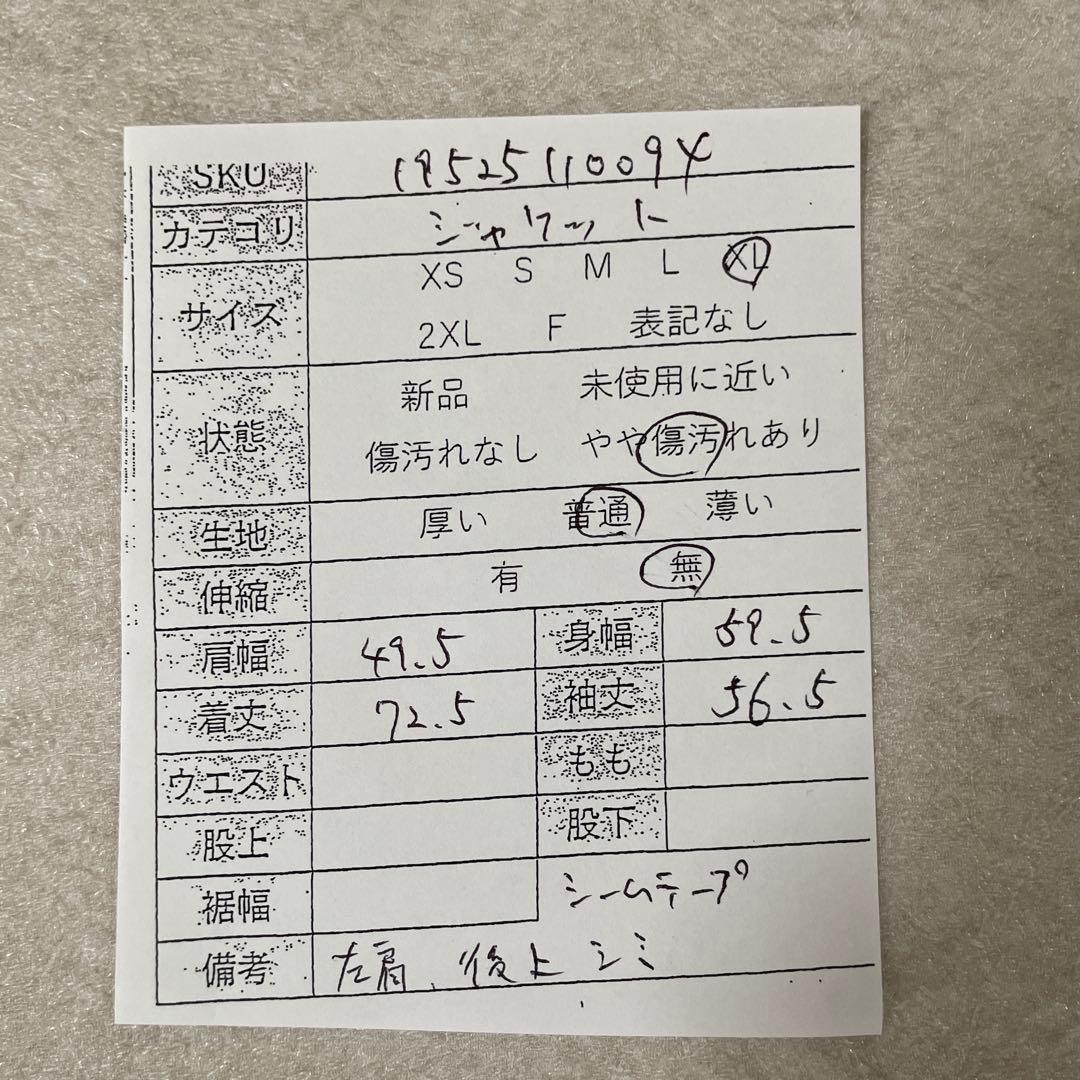 SKU 19525110094
カテゴリ ジャケット
サイズ XS S M L XL
2XL F 表記なし
状態 新品 未使用に近い
傷汚れなし やや傷汚れあり
生地 厚い 普通 薄い
伸縮 有 無
肩幅 49.5 身幅 59.5
着丈 72.5 袖丈 56.5
ウエスト もも
股上 股下
裾幅 シームテープ
備考 左肩、後上シミ